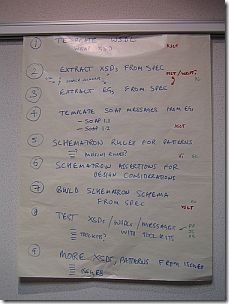 1 TEMPLATE WSDL
WHAT XSD? XSLT
2 EXTRACT XSDs FROM SPEC
3 EXTRACT EGs FROM SPEC
4 TEMPLATE SOAP MESSAGES FROM EGs
- SOAP 1.1
- SOAP 1.2 XSLT
5 SCHEMATRON RULES FOR PATTERNS
6 SCHEMATRON ASSERTIONS FOR
DESIGN CONSIDERATIONS
7 BUILD SCHEMATRON SCHEMA
FROM SPEC XSLT
8 TEST XSDs/WSDLs/MESSAGES
WITH TOOLKITS
TOOLKITS?
9 MORE XSDs/PATTERNS FROM ISSUES
ISSUES